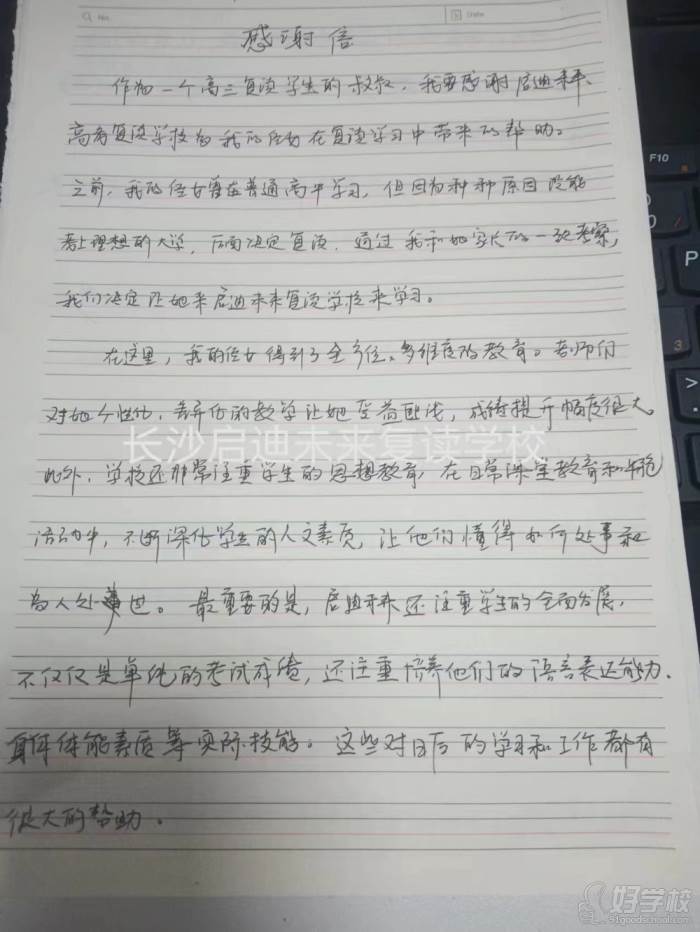 No.
Date
感谢信
作为一个高三复读学生的叔叔，我要感谢启迪未来
高考复读学校为我的侄女在复读学习中带来的帮助。
之前，我的侄女曾在普通高中学习，但因为种种原因没能
考上理想的大学，后面决定复读，通过我和她家长的一致考察，
我们决定让她来启迪未来复读学校来学习。
在这里，我的侄女得到了全方位、多维度的教育。老师们
对她个性化，差异化的教学让她受益匪浅，成绩提升幅度很大。
长沙启迪未来复读学校
此外，学校还非常注重学生的思想教育，在日常课堂教育和
活动中，不断深化学生的人文素质，让他们懂得如何处事和
为人处世。最重要的是，启迪未来还注重学生的全面发展，
不仅仅是单纯的考试成绩，还注重培养他们的语言表达能力、
身体体能素质等实际技能。这些对日后的学习和工作都有
很大的帮助。
F10
好学校
91goodschool.com